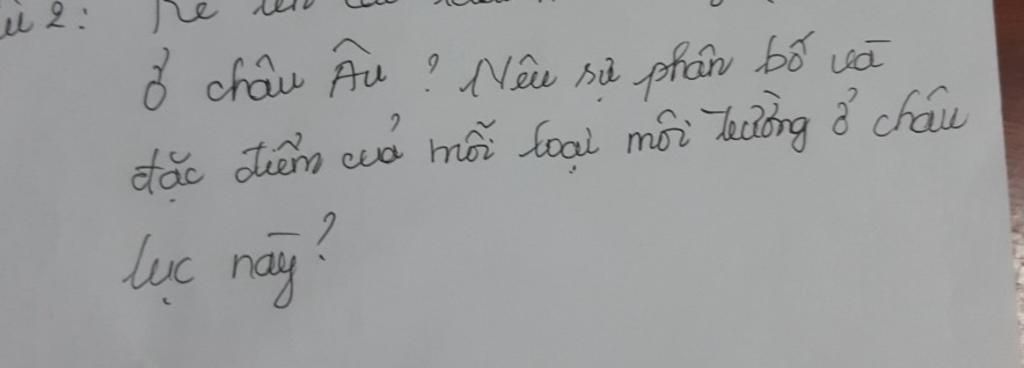 2: Kể tên các
ở châu Âu? Nêu sự phân bố và
đặc điểm của mỗi loại môi trường ở châu
lục này?